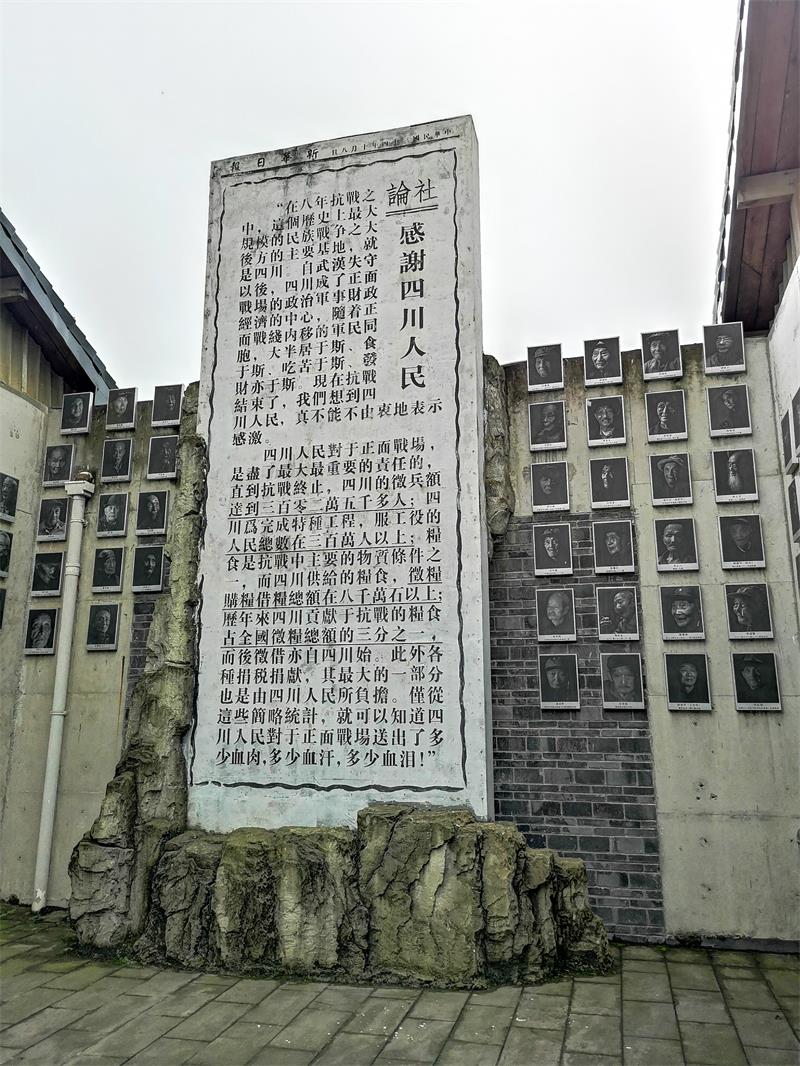 中華民國三十四年十月八日 新華日報
社論
感謝四川人民
“在八年抗戰之
中，這個歷史上最大
規模的民族戰爭之大
後方的主要基地，就
是四川。自武漢失守
以後，四川成了正面
戰場的政治軍事財政
經濟的中心，隨着正
面戰綫內移的軍民同
胞，大半居于斯、食
于斯、吃苦于斯、發
財亦于斯。現在抗戰
結束了，我們想到四
川人民，真不能不由衷地表示
感激。
四川人民對于正面戰場，
是盡了最大最重要的責任的，
直到抗戰終止，四川的徵兵額
達到三百零二萬五千多人；四
川爲完成特種工程，服工役的
人民總數在三百萬人以上；糧
食是抗戰中主要的物質條件之
一，而四川供給的糧食，徵糧
購糧借糧總額在八千萬石以上；
歷年來四川貢獻于抗戰的糧食
占全國徵糧總額的三分之一，
而後徵借亦自四川始。此外各
種捐税捐獻，其最大的一部分
也是由四川人民所負擔。僅從
這些簡略統計，就可以知道四
川人民對于正面戰場送出了多
少血肉，多少血汗，多少血泪！”